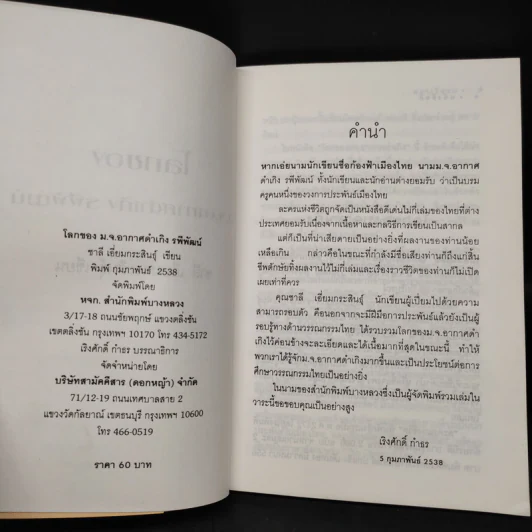 โลกของ ม.จ.อากาศดำเกิง รพีพัฒน์
ชาลี เอี่ยมกระสินธุ์ เขียน
พิมพ์ กุมภาพันธ์ 2538
จัดพิมพ์โดย
หจก. สำนักพิมพ์บางหลวง
3/17-18 ถนนชัยพฤกษ์ แขวงตลิ่งชัน
เขตตลิ่งชัน กรุงเทพฯ 10170 โทร 434-5172
เริงศักดิ์ กำธร บรรณาธิการ
จัดจำหน่ายโดย
บริษัทสามัคคีสาร (ดอกหญ้า) จำกัด
71/12-19 ถนนเทศบาลสาย 2
แขวงวัดกัลยาณ์ เขตธนบุรี กรุงเทพฯ 10600
โทร 466-0519
ราคา 60 บาท
คำนำ
หากเอ่ยนามนักเขียนชื่อก้องฟ้าเมืองไทย นามม.จ.อากาศ
ดำเกิง รพีพัฒน์ ทั้งนักเขียนและนักอ่านต่างยอมรับ ว่าเป็นบรม
ครูคนหนึ่งของวงการประพันธ์เมืองไทย
ละครแห่งชีวิตถูกจัดเป็นหนังสือดีเด่นไม่กี่เล่มของไทยที่ต่าง
ประเทศยอมรับเนื่องจากเนื้อหาและกลวิธีการเขียนเป็นสากล
แต่ก็เป็นที่น่าเสียดายเป็นอย่างยิ่งที่ผลงานของท่านน้อย
เหลือเกิน กล่าวคือในขณะที่กำลังมีชื่อเสียงท่านก็ถึงแก่สิ้น
ชีพตักษัยทิ้งผลงานไว้ไม่กี่เล่มและเรื่องราวชีวิตของท่านก็ไม่เปิด
เผยเท่าที่ควร
คุณชาลี เอี่ยมกระสินธุ์ นักเขียนผู้เปี่ยมไปด้วยความ
สามารถรอบตัว คือนอกจากจะมีฝีมือการประพันธ์แล้วยังเป็นผู้
รอบรู้ทางด้านวรรณกรรมไทย ได้รวบรวมโลกของม.จ.อากาศดำ
เกิงไว้ค่อนข้างจะละเอียดและได้เนื้อมากที่สุดในขณะนี้ ทำให้
พวกเราได้รู้จักม.จ.อากาศดำเกิงมากขึ้นและเป็นประโยชน์ต่อการ
ศึกษาวรรณกรรมไทยเป็นอย่างยิ่ง
ในนามของสำนักพิมพ์บางหลวงซึ่งเป็นผู้จัดพิมพ์รวมเล่มใน
วาระนี้ขอขอบคุณเป็นอย่างสูง
เริงศักดิ์ กำธร
5 กุมภาพันธ์ 2538